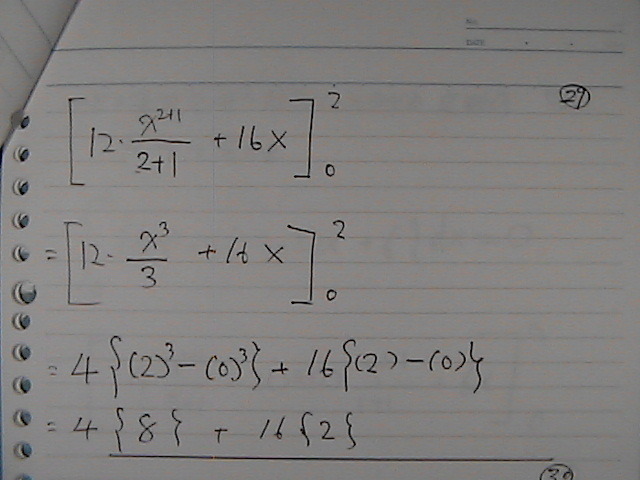 No.
DATE
29
[12·x^{2+1}/(2+1) + 16x]_0^2
= [12·x^3/3 + 16x]_0^2
= 4{(2)^3-(0)^3} + 16{(2)-(0)}
= 4{8} + 16{2}
30